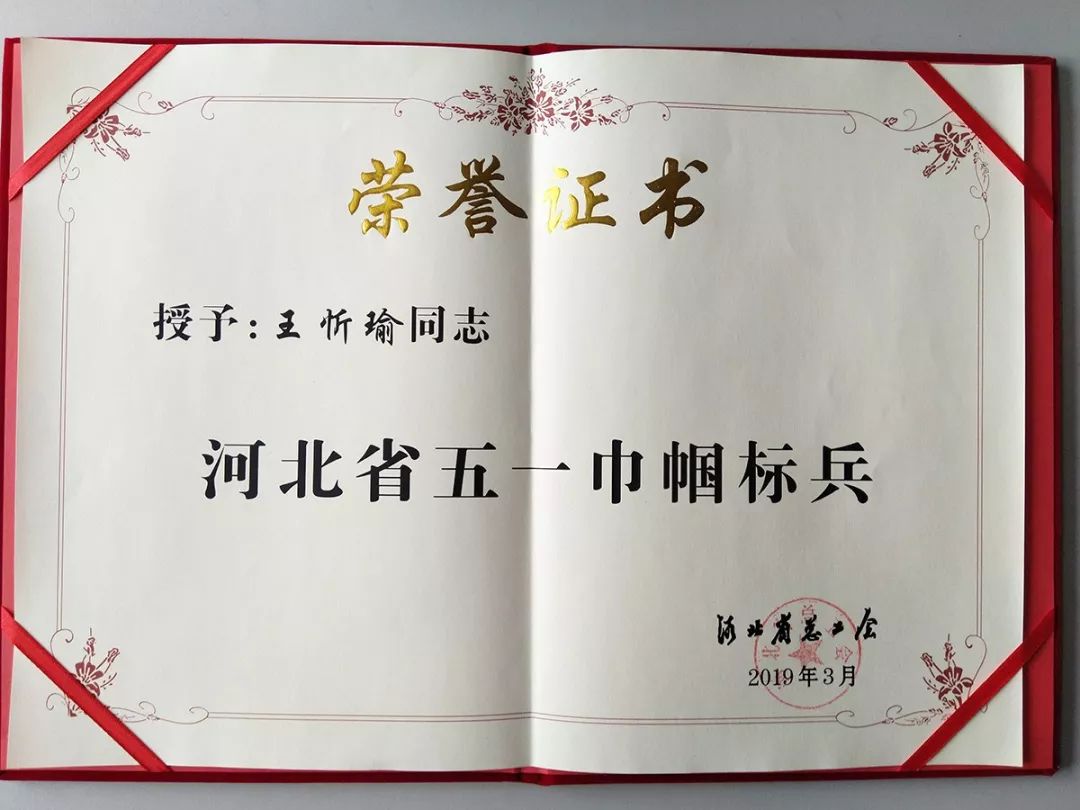 荣誉证书
授予：王忻瑜同志
河北省五一巾帼标兵
河北省总工会
2019年3月